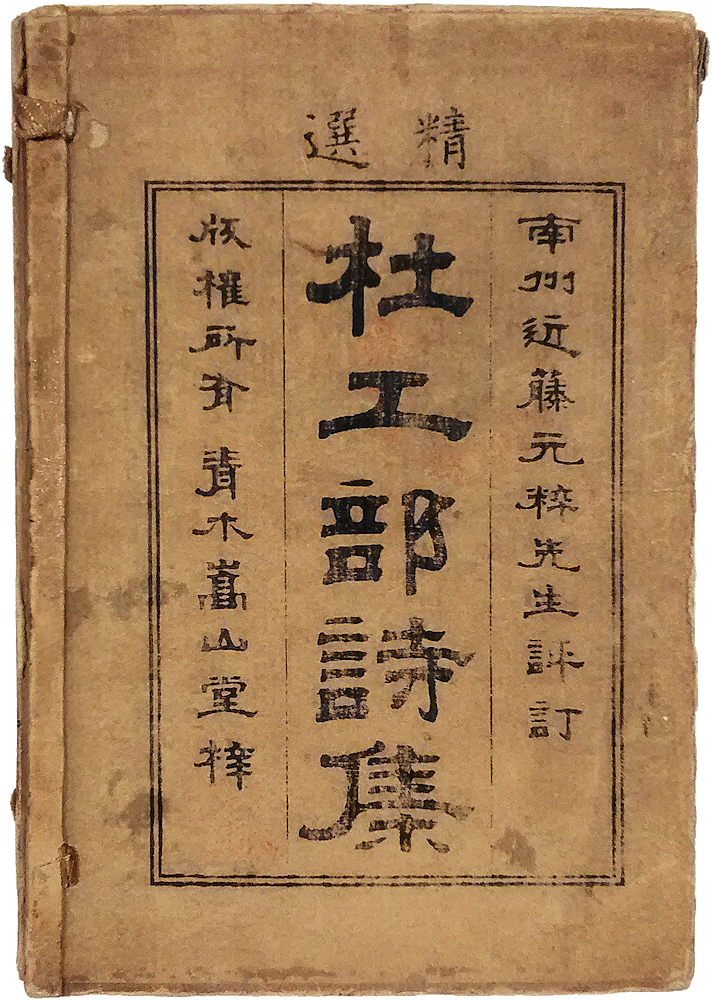 精選
南州近藤元粹先生評訂
杜工部詩集
版權所有 青木嵩山堂梓